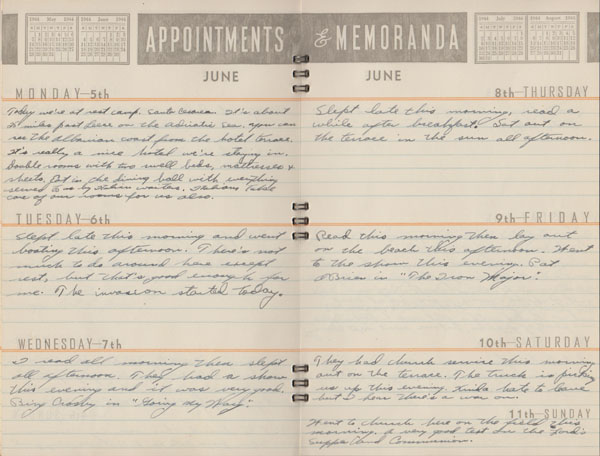 1944 May 1944
1944 June 1944
APPOINTMENTS
& MEMORANDA
1944 July 1944
1944 August 1944
JUNE
JUNE
MONDAY 5th
Today we're at rest camp. Santa Cesarea. It's about
miles past Lecce on the Adriatic Sea, you can
see the Albanian coast from the hotel terrace.
It's really a nice hotel we're staying in.
Double rooms with two swell beds, mattresses &
sheets. Eat in the dining hall with everything
served to us by Italian waiters. Italians take
care of our rooms for us also.
TUESDAY 6th
Slept late this morning and went
boating this afternoon. There's not
much to do around here except
rest, but that's good enough for
me. The invasion started today.
WEDNESDAY 7th
I read all morning then slept
all afternoon. They had a show
this evening and it was very good.
Bing Crosby in "Going my Way".
8th THURSDAY
Slept late this morning, read a
while after breakfast. Sat out on
the terrace in the sun all afternoon.
9th FRIDAY
Read this morning then lay out
on the beach this afternoon. Went
to the show this evening. Pat
O'Brien in "The Iron Major".
10th SATURDAY
They had church service this morning
out on the terrace. The truck is picking
us up this evening. Kinda hate to leave
but I hear there's a war on.
11th SUNDAY
Went to church here on the field this
morning. A very good test on the Lord's
Supper and Communion.